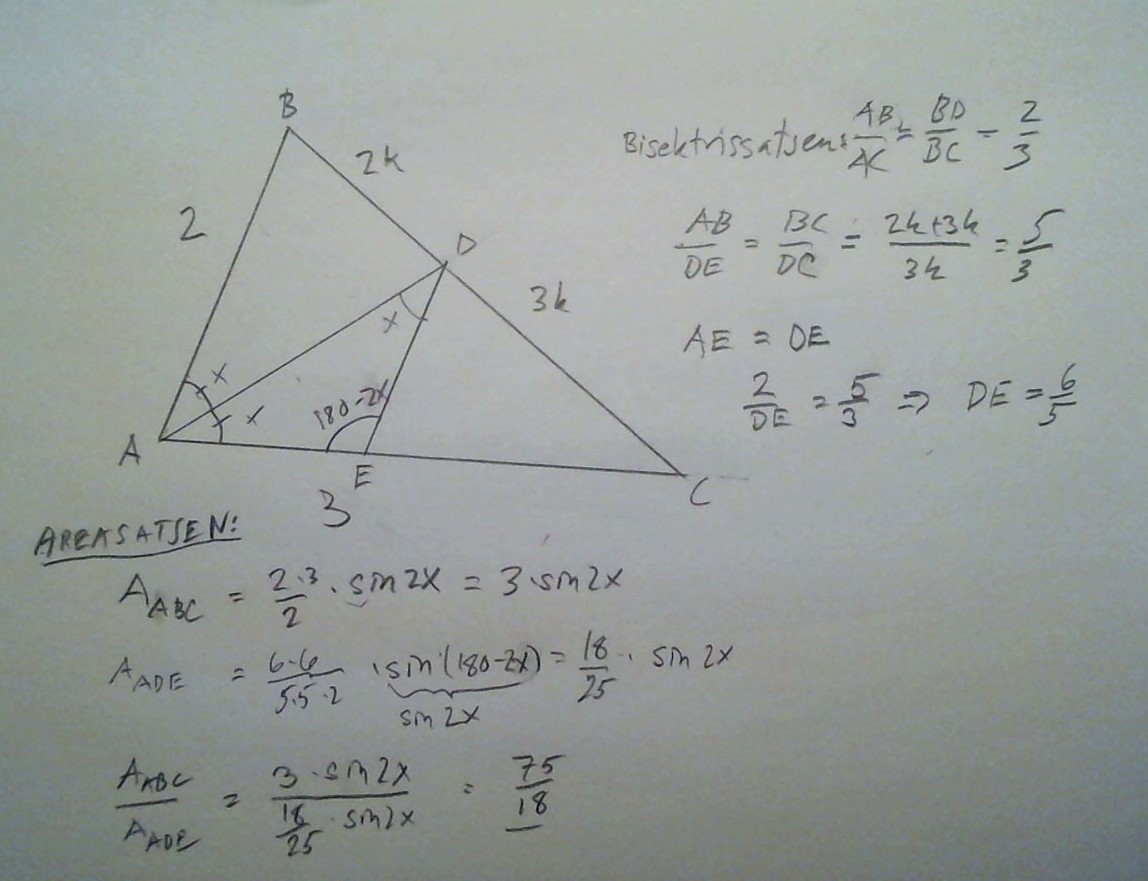 B
2k
2
D
3k
x
x
x
180-2x
A
E
3
C
Bisektrissatsen: AB/AC = BD/BC = 2/3
AB/DE = BC/DC = (2k+3k)/3k = 5/3
AE = DE
2/DE = 5/3 ⇒ DE = 6/5
AREASATSEN:
A_ABC = (2·3)/2 · sin 2x = 3·sin 2x
A_ADE = (6·6)/(5·5·2) · sin(180-2x) = 18/25 · sin 2x
sin 2x
A_ABC/A_ADE = (3·sin 2x)/(18/25 · sin 2x) = 75/18